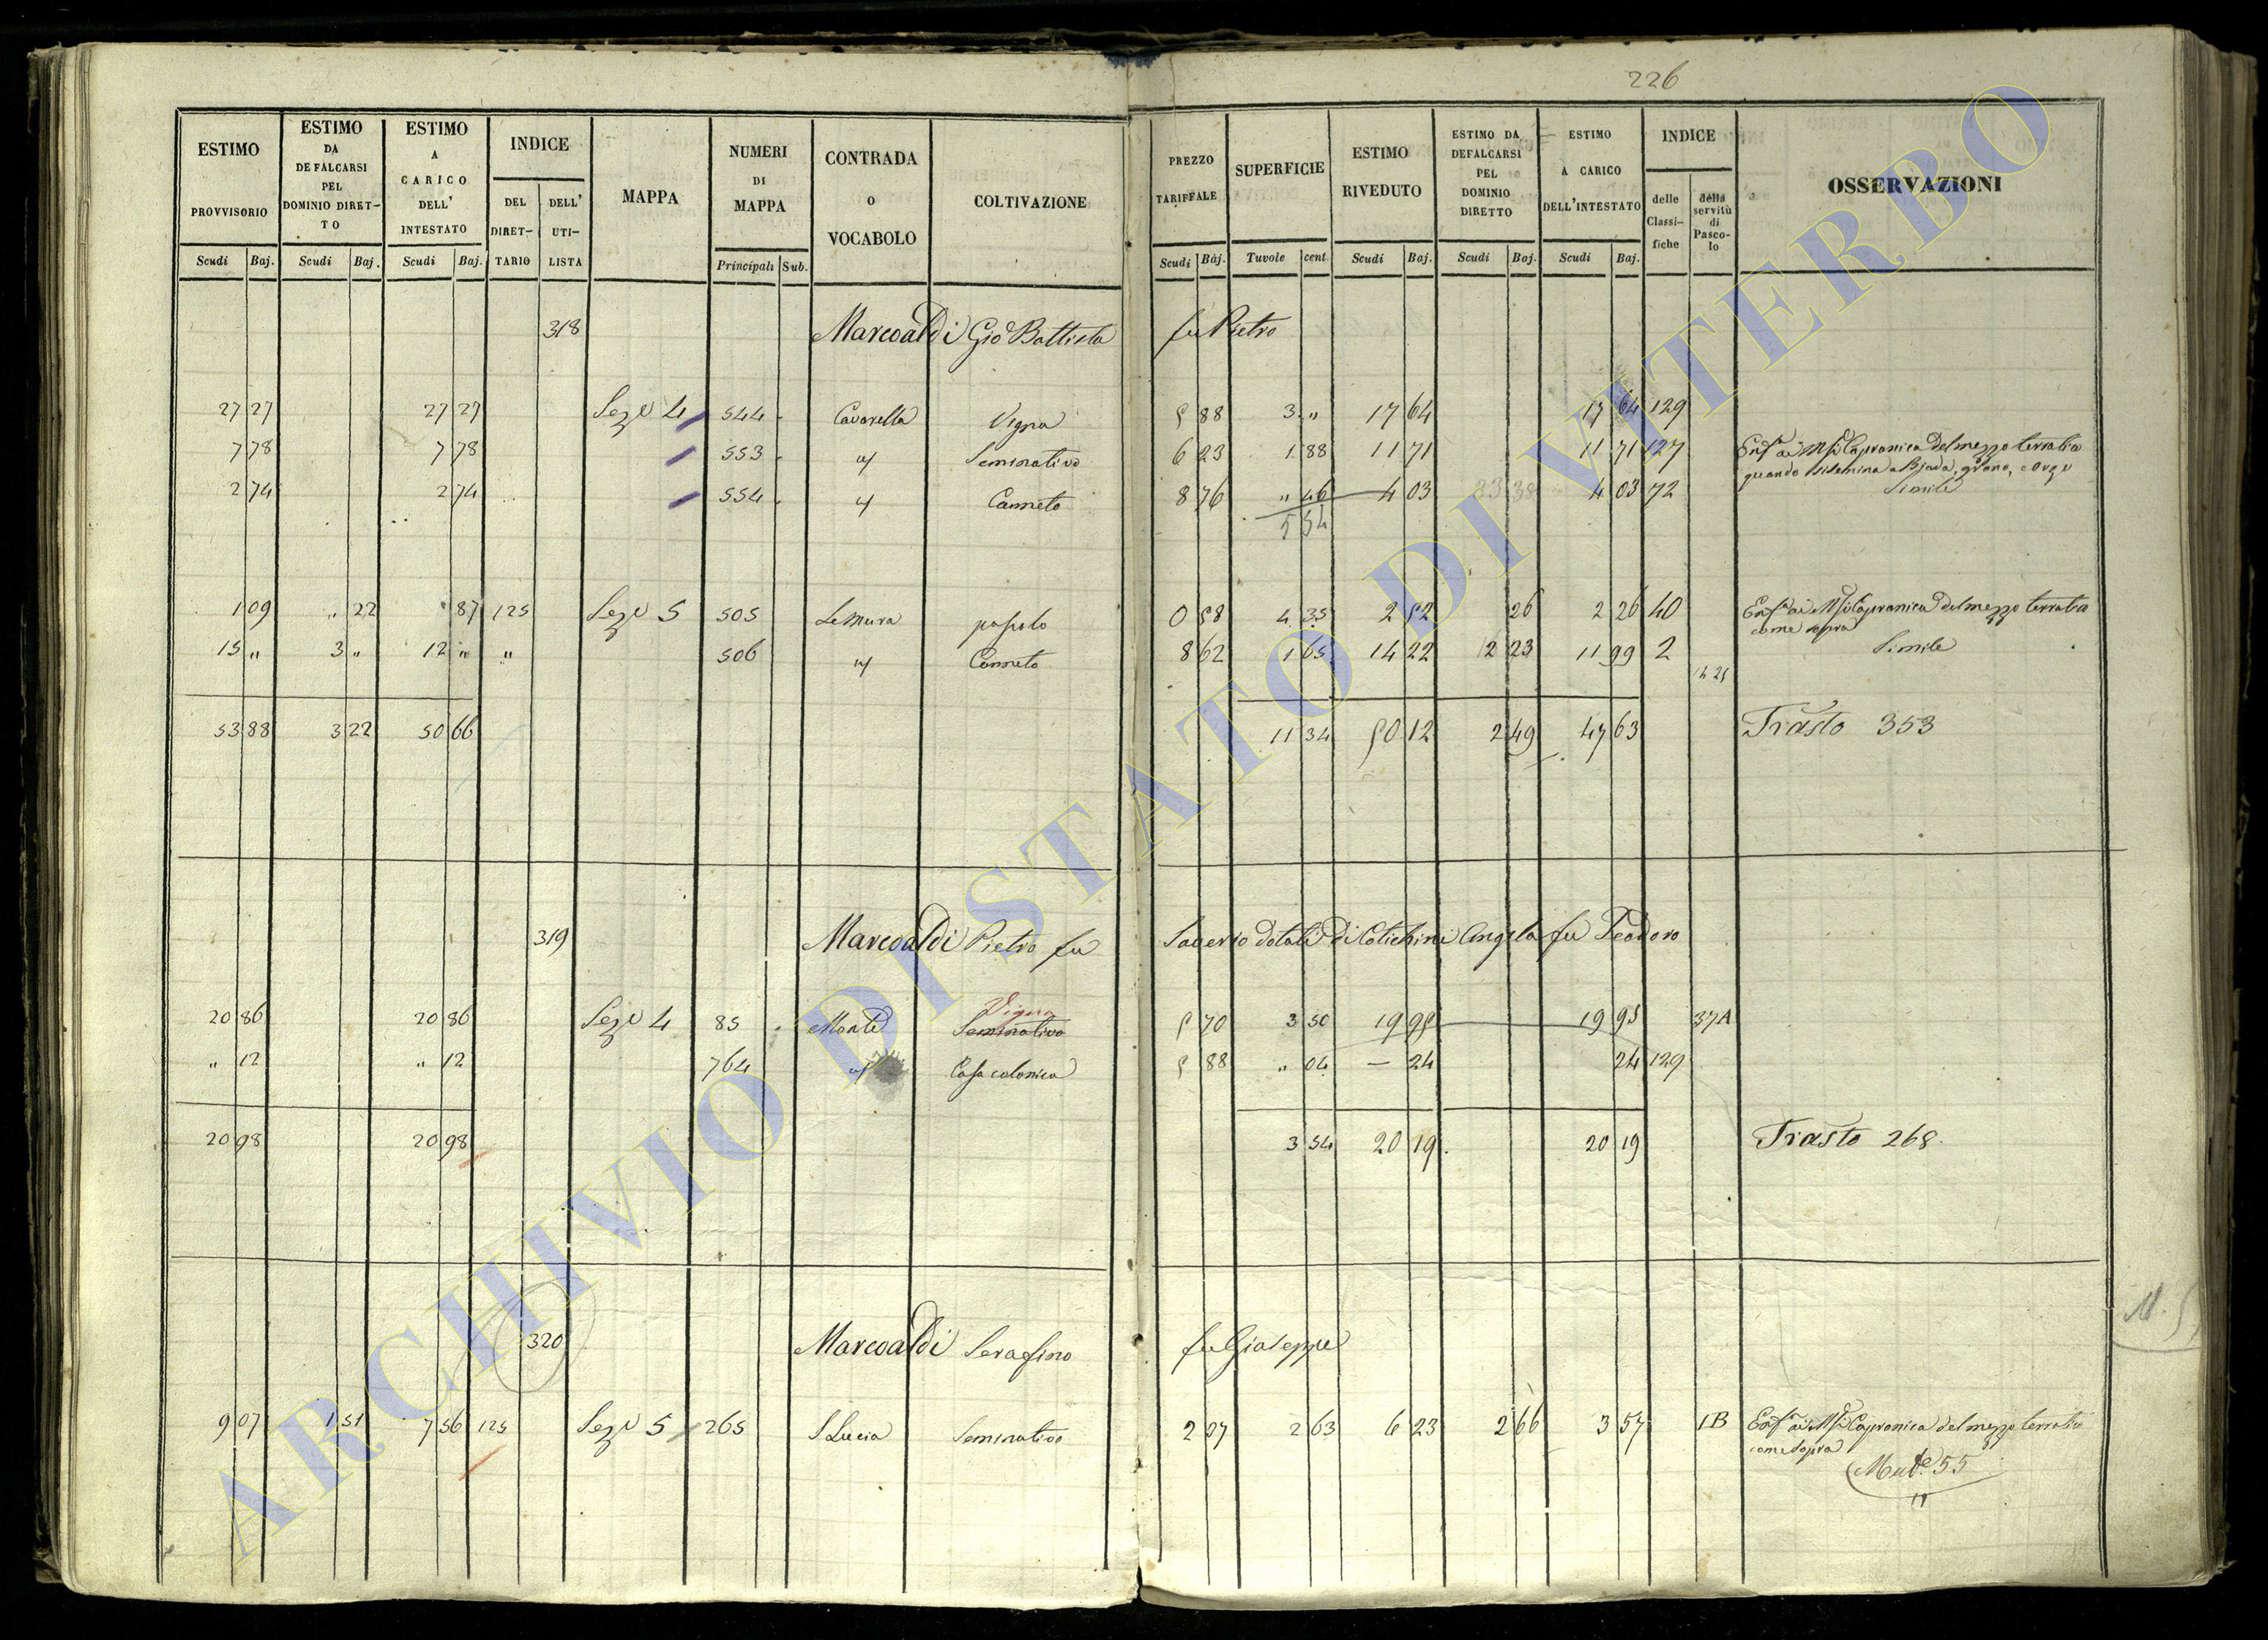 226
ESTIMO PROVVISORIO | ESTIMO DA DEFALCARSI PEL DOMINIO DIRET-TO | ESTIMO A CARICO DELL' INTESTATO | INDICE DEL DIRET-TARIO | DELL' UTI-LISTA | MAPPA | NUMERI DI MAPPA | CONTRADA O VOCABOLO | COLTIVAZIONE | PREZZO TARIFFALE | SUPERFICIE | ESTIMO RIVEDUTO | ESTIMO DA DEFALCARSI PEL DOMINIO DIRETTO | ESTIMO A CARICO DELL'INTESTATO | INDICE delle Classi-fiche | della servitù di Pasco-lo | OSSERVAZIONI
Scudi Baj. Scudi Baj. Scudi Baj. Principali Sub. Scudi Baj. Tavole cent. Scudi Baj. Scudi Baj. Scudi Baj.
318 Marcoaldi Gio Battista fu Pietro
27 27 27 27 Seze 4 544 Cavarella Vigna 5 88 3 " 17 64 17 64 129
7 78 7 78 553 " Seminativo 6 23 1 88 11 71 11 71 127 Enfa ai Msi Capranica del mezzo terratico
quando si semina a Bjada, grano, e Orzo
2 74 2 74 554 " Canneto 8 76 " 46 4 03 4 03 72 Simile
5 34
1 09 " 22 " 87 125 Seze 5 505 Le Mura pascolo 0 58 4 35 2 52 26 2 26 40 Enfa ai Msi Capranica del mezzo terratico
come sopra
15 " 3 " 12 " " 506 " Canneto 8 62 1 65 14 22 2 23 11 99 2 Simile
53 88 3 22 50 66 11 34 50 12 2 49 47 63 Trasto 353
319 Marcoaldi Pietro fu Saverio dotali di Cotichini Angela fu Teodoro
Vigna
20 86 20 86 Seze 4 85 Monte Seminativo 5 70 3 50 19 95 19 95 37A
" 12 " 12 764 " Casa colonica 5 88 " 04 — 24 24 129
20 98 20 98 3 54 20 19 20 19 Trasto 268
320 Marcoaldi Serafino fu Giuseppe
9 07 1 51 7 56 125 Seze 5 265 S Lucia Seminativo 2 37 2 63 6 23 2 66 3 57 1B Enfa ai Msi Capranica del mezzo terratico
come sopra
Mute 55